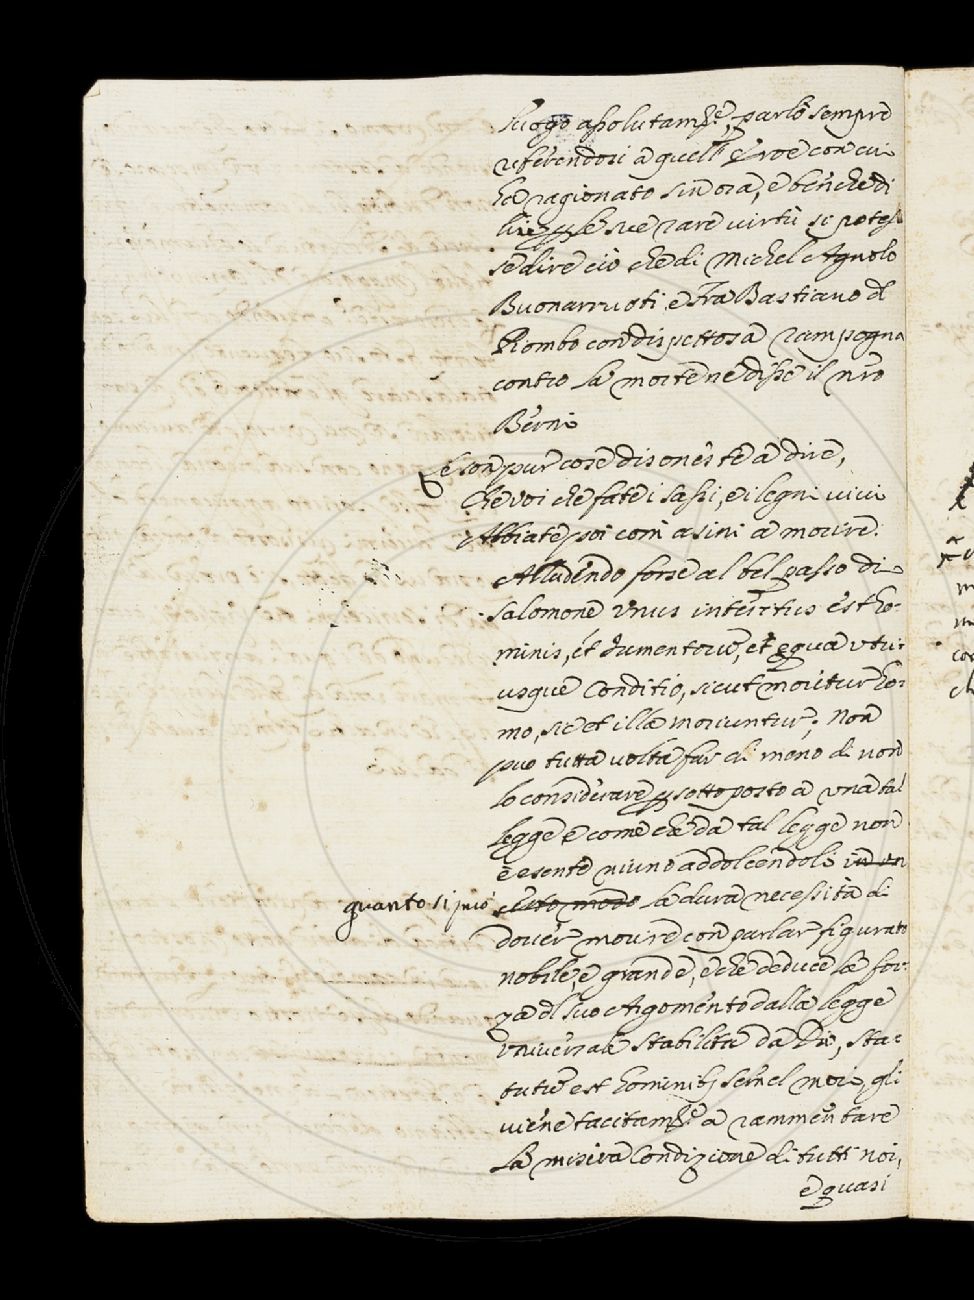 luogo assolutam.te, parlò sempre
referendosi a quell' Eroe con cui
ha ragionato sin ora, e benche di
lui p le sue rare virtù si potes
se dire ciò che di Michel Agnolo
Buonarruoti, e Fra Bastiano dl
Piombo con dispettosa rampogna
contro la morte ne disse il nro
Berni
E son pur cose disoneste a dire,
Che voi che fate i sassi, e i legni vivi
Abbiate poi com asini a morire.
Alludendo forse al bel passo di
Salomone Vnus interitus est ho-
minis, et Iumentorũ, et equa vtri-
usque Conditio, sicut moritur ho-
mo, sic et illa moriuntur; Non
può tutta volta far di meno di non
lo considerare p sottoposto a vna tal
legge e come che da tal legge non
è esente niuno addolcendoli in un
quanto si può certo modo la dura necessità di
dover morire con parlar figurato
nobile, e grande, e che deduce la for-
za dl suo Argomento dalla legge
vniversale stabilita da Dio, sta-
tutũ est hominib; semel mori, gli
viene tacitam.te a rammentare
La misera Condizione di tutti noi,
e quasi